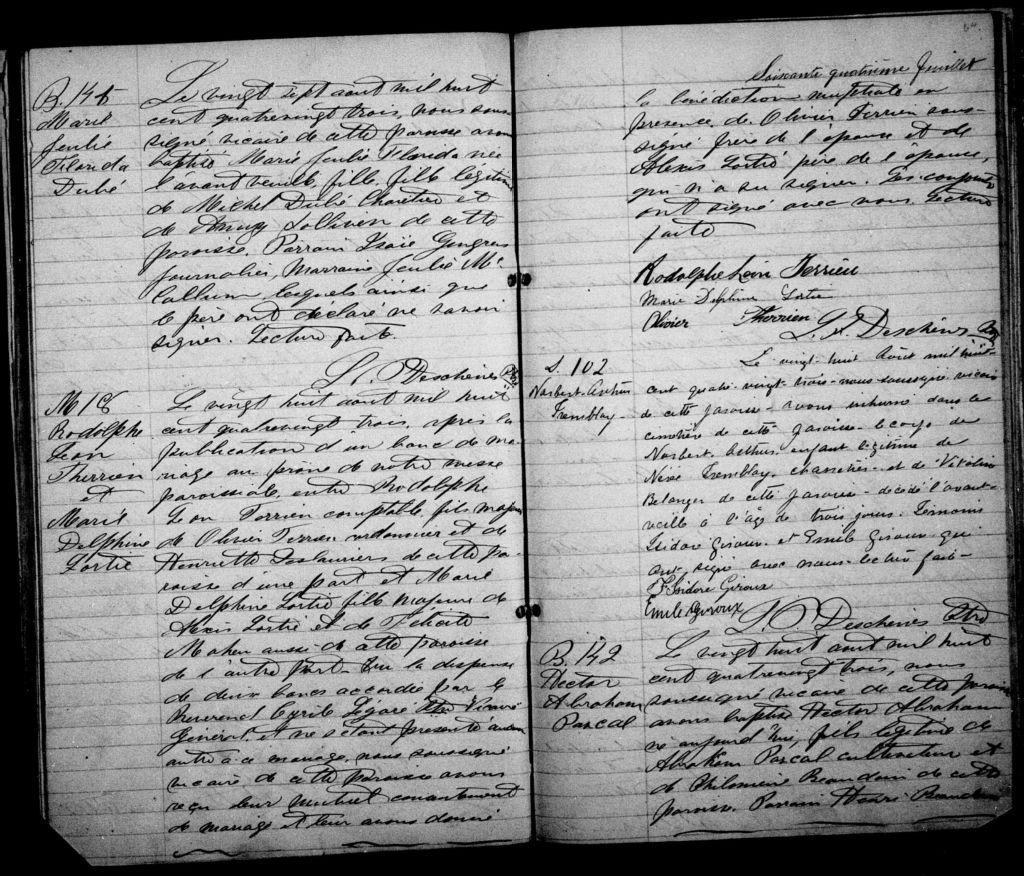 B. 145
Marie
Julie
Florida
Dubé
Le vingt sept aout mil huit
cent quatrevingt trois, nous sous
signé vicaire de cette paroisse avons
baptisé Marie Julie Florida née
l'avant veille, fille, fille légitime
de Michel Dubé Charetier et
de Sullivan de cette
paroisse. Parrain Isaïe Gingras
journalier, Marraine Julie Mc
Callum lesquels ainsi que
le père ont déclaré ne savoir
signer. Lecture faite.
Deschènes
M 18
Rodolphe
Léon
Therrien
et
Marie
Delphine
Fortié
Le vingt huit aout mil huit
cent quatrevingt trois, après la
publication d'un banc de ma-
riage au prone de notre messe
paroissiale, entre Rodolphe
Léon Terrien comptable, fils majeur
de Olivier Terrien cordonnier et de
Henriette Deslauriers de cette pa-
roisse d'une part et Marie
Delphine Fortié fille majeure de
Alexis Fortié et de Félicité
Maheu aussi de cette paroisse
de l'autre part. Vu la dispense
de deux bancs accordée par le
Révérend Cyrille Légaré Vicaire
Général et ne s'étant présenté aucun
autre à ce mariage, nous soussigné
vicaire de cette paroisse avons
reçu leur mutuel consentement
de mariage et leur avons donné
64.
Soixante quatrième feuillet
la bénédiction nuptiale en
presence de Olivier Terrien sous-
signé frère de l'époux et de
Alexis Fortié père de l'épouse,
qui n'a su signer. Les conjoints
ont signé avec nous. Lecture
faite
Rodolphe Léon Terrien
Marie Delphine Fortie
Olivier Therrien
Deschènes
S. 102
Norbert Arthur
Tremblay
Le vingt-huit Août mil huit-
cent quatre-vingt-trois-nous soussigné vicaire
de cette paroisse-avons inhumé dans le
cimetière de cette paroisse-le corps de
Norbert Arthur enfant légitime de
Tremblay, charretier-et de
Belanger de cette paroisse-décédé l'avant-
veille à l'âge de trois jours. Temoins
Isidore Giroux-et Emile Giroux qui
ont signé avec nous-lecture faite-
Isidore Giroux
Emile Giroux
Deschènes
B. 142
Hector
Abraham
Pascal
Le vingt huit aout mil huit
cent quatrevingt trois, nous
soussigné vicaire de cette paroisse
avons baptisé Hector Abraham
né aujourd'hui, fils légitime de
Abraham Pascal cultivateur et
de Philomène Beaudoin de cette
paroisse. Parrain Henri